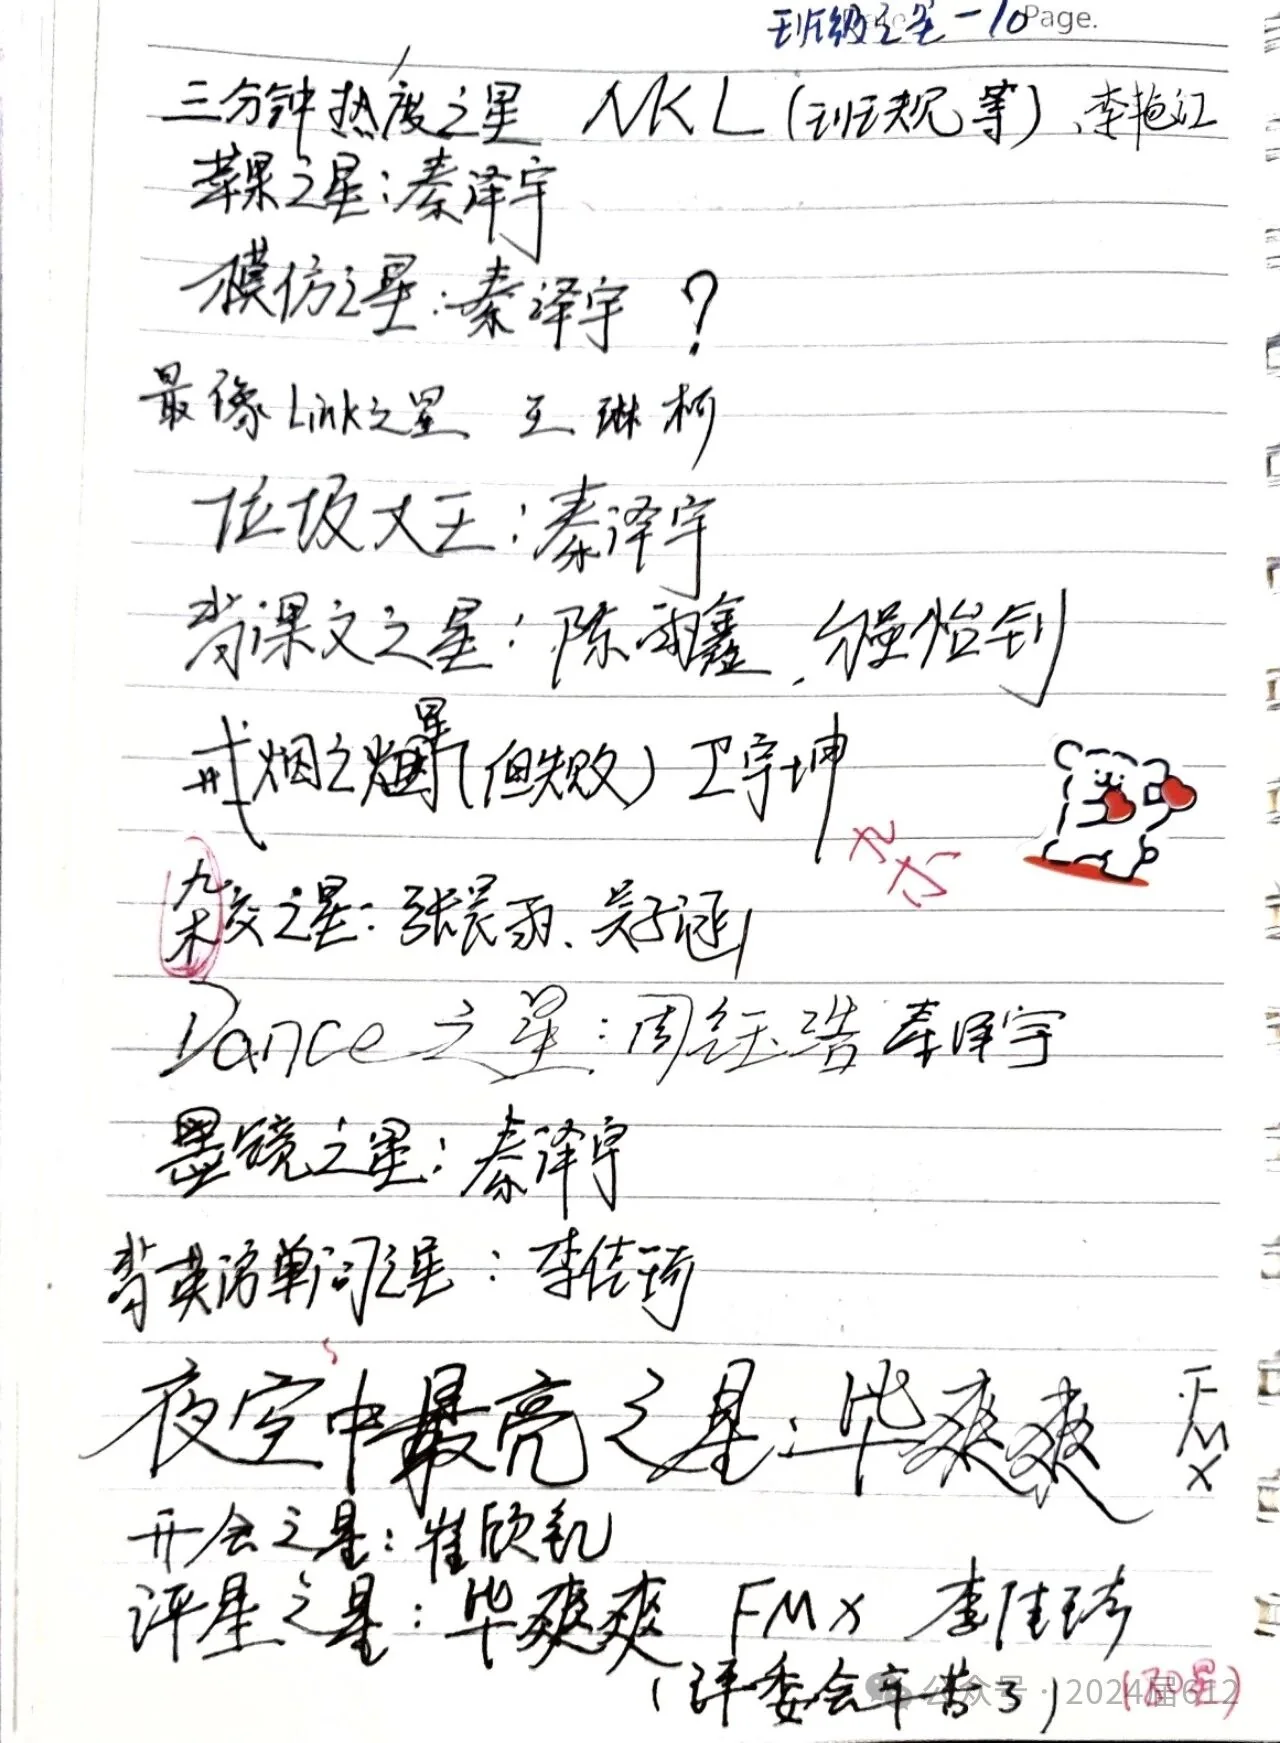 班级之星-10 Page.
三分钟热度之星 NKL (班规等)、李艳江
苹果之星:秦泽宇
模仿之星:秦泽宇 ?
最像Link之星 王琳柯
垃圾大王:秦泽宇
背课文之星:陈雨鑫、
戒烟之星(但失败)卫宇坤
九木
杂交之星:张晨雨、吴子涵
Dance之星:周钰浩 秦泽宇
墨镜之星:秦泽宇
背英语单词之星:李佳琦
夜空中最亮之星:毕爽爽 FMX
开会之星:崔欣凯
评星之星:毕爽爽 FMX 李佳琦
(评委会辛苦了)
公众号·2024届612